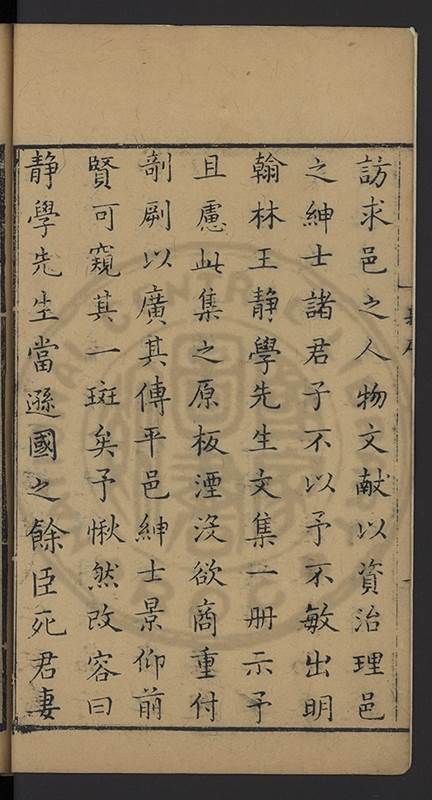 訪求邑之人物文献以資治理邑
之紳士諸君子不以予不敏出明
翰林王静學先生文集一册示予
且慮此集之原板湮沒欲商重付
剞劂以廣其傳平邑紳士景仰前
賢可窺其一斑矣予愀然改容曰
静學先生當遜國之餘臣死君妻